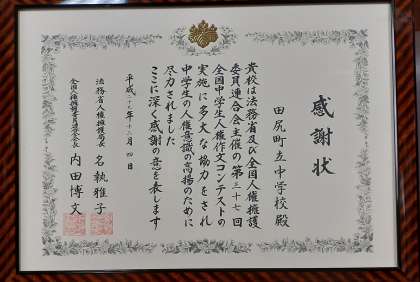 感謝状
田尻町立中学校殿
貴校は法務省及び全国人権擁護
委員連合会主催の第三十七回
全国中学生人権作文コンテストの
実施に多大な協力をされ
中学生の人権意識の高揚のために
尽力されました
ここに深く感謝の意を表します
平成二十九年十二月四日
法務省人権擁護局長 名執雅子
全国人権擁護委員連合会長 内田博文